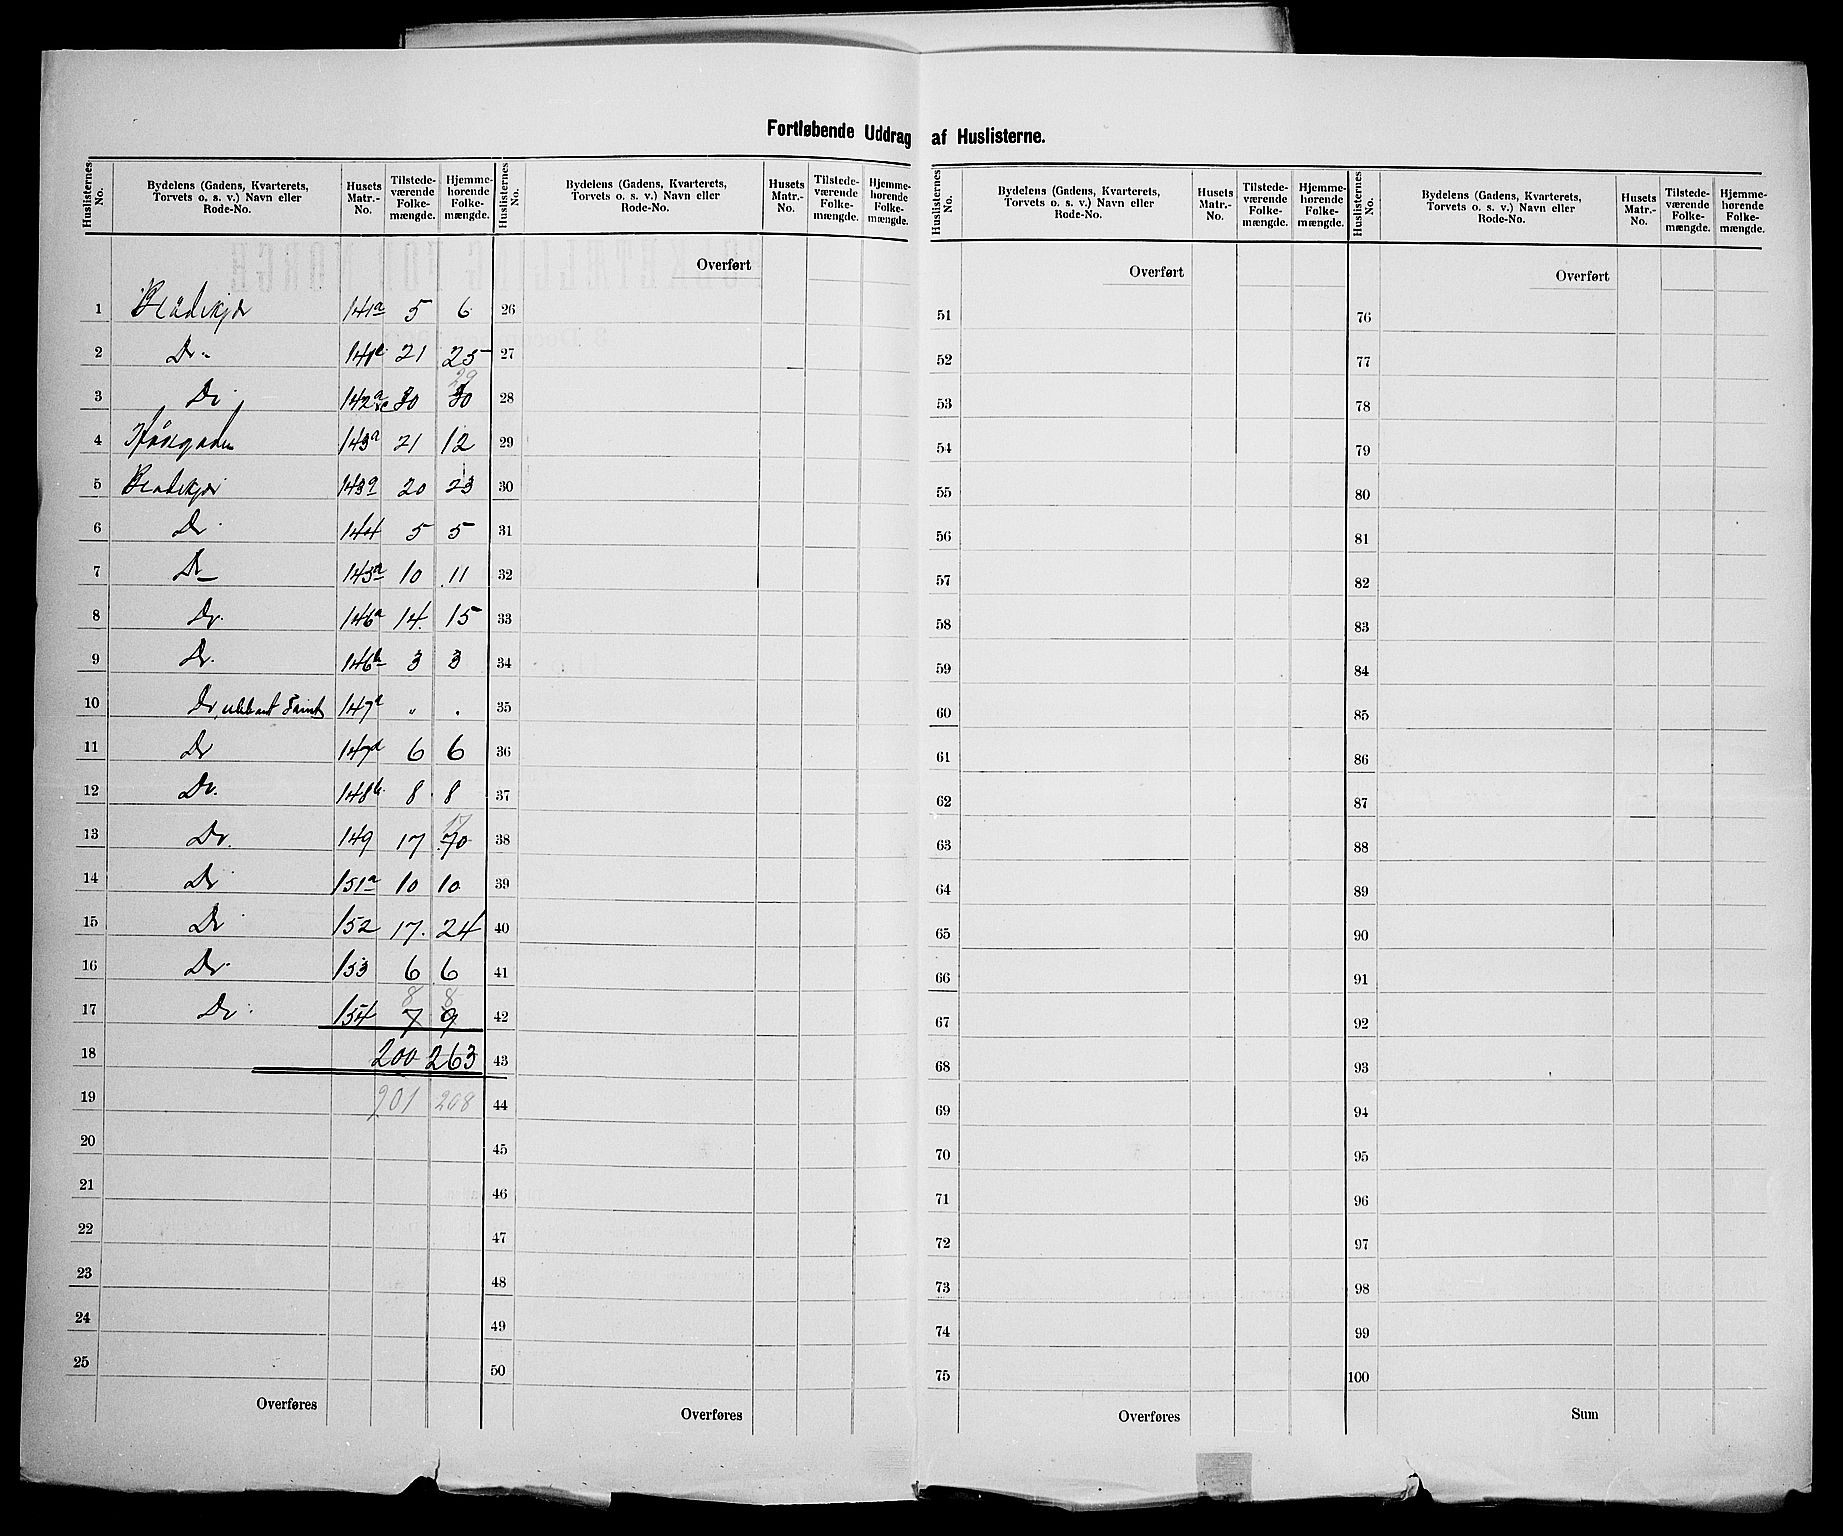 Fortløbende Uddrag af Huslisterne.
Huslisternes No. Bydelens (Gadens, Kvarterets, Torvets o. s. v.) Navn eller Rode-No. Husets Matr.-No. Tilstedeværende Folkemængde. Hjemmehørende Folkemængde.
1 141a 5 6
2 Do 141 21 25
3 Do 142a 30 29 30
4 143a 21 12
5 20 23
6 Do 144 5 5
7 Do 145a 10 11
8 Do. 146a 14. 15
9 Do. 146b 3 3
10 Do, 147a " .
11 Do 147d 6 6
12 Do. 148b 8 8
13 Do. 149 17 17 70
14 Do 151a 10 10
15 Do 152 17. 24
16 Do 153 6 6
17 Do 154 8 7 8 9
18 200 263
19 201 208
20
21
22
23
24
25
Overføres
Huslisternes No. Bydelens (Gadens, Kvarterets, Torvets o. s. v.) Navn eller Rode-No. Husets Matr.-No. Tilstedeværende Folkemængde. Hjemmehørende Folkemængde.
Overført
26
27
28
29
30
31
32
33
34
35
36
37
38
39
40
41
42
43
44
45
46
47
48
49
50
Overføres
Huslisternes No. Bydelens (Gadens, Kvarterets, Torvets o. s. v.) Navn eller Rode-No. Husets Matr.-No. Tilstedeværende Folkemængde. Hjemmehørende Folkemængde.
Overført
51
52
53
54
55
56
57
58
59
60
61
62
63
64
65
66
67
68
69
70
71
72
73
74
75
Overføres
Huslisternes No. Bydelens (Gadens, Kvarterets, Torvets o. s. v.) Navn eller Rode-No. Husets Matr.-No. Tilstedeværende Folkemængde. Hjemmehørende Folkemængde.
Overført
76
77
78
79
80
81
82
83
84
85
86
87
88
89
90
91
92
93
94
95
96
97
98
99
100
Sum